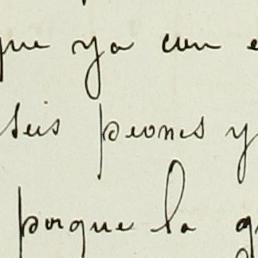 que ya con e
seis peones y
porque la g